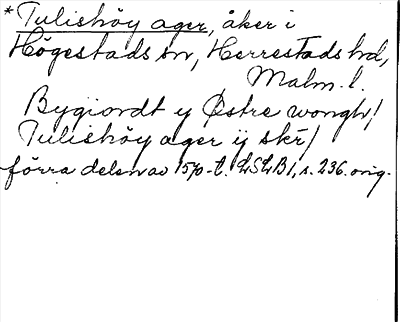 *Tulishöy ager, åker i
Högestads sn, Herrestads hd,
Malm. l.
Bygiordt y Østre wongh/
Tulishöy ager ij skr/
förra delen av 1570-t. LSLB1, s. 236. orig.